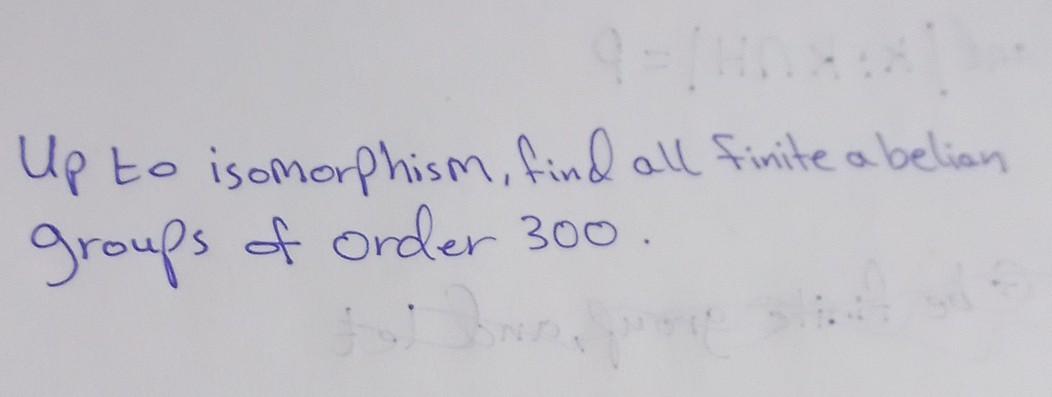 Up to isomorphism, find all finite abelian
groups of order 300.